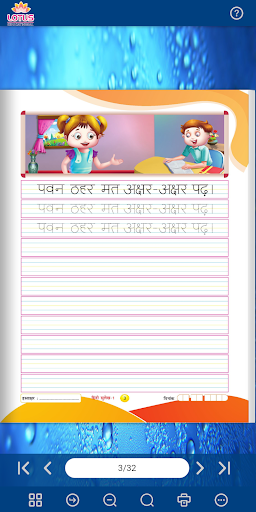 LOTUS
पवन ठहर मत अक्षर-अक्षर पढ़।
पवन ठहर मत अक्षर-अक्षर पढ़।
पवन ठहर मत अक्षर-अक्षर पढ़।
हस्ताक्षर : हिन्दी सुलेख-1 3 दिनांक
3/32